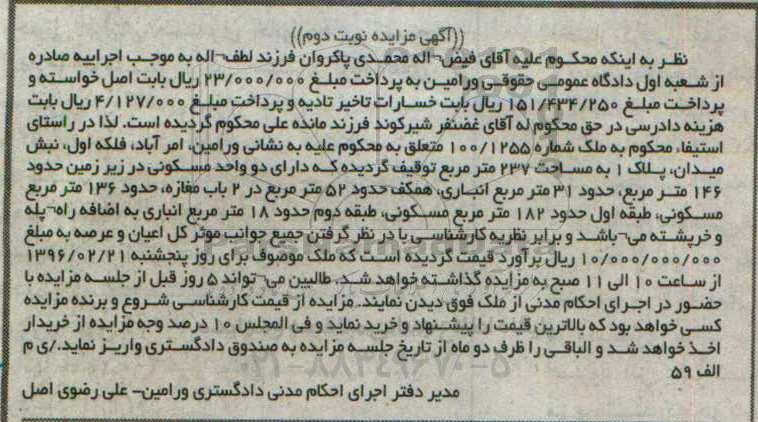 ((آگهی مزایده نوبت دوم))
نظر به اینکه محکوم علیه آقای فیض¬اله محمدی پاکروان فرزند لطف¬اله به موجب اجراییه صادره
از شعبه اول دادگاه عمومی حقوقی ورامین به پرداخت مبلغ ۲۳/۰۰۰/۰۰۰ ریال بابت اصل خواسته و
پرداخت مبلغ ۱۵۱/۴۳۴/۲۵۰ ریال بابت خسارات تاخیر تادیه و پرداخت مبلغ ۴/۱۲۷/۰۰۰ ریال بابت
هزینه دادرسی در حق محکوم له آقای غضنفر شیرکوند فرزند مانده علی محکوم گردیده است. لذا در راستای
استیفاء محکوم به ملک شماره ۱۰۰/۱۲۵۵ متعلق به محکوم علیه به نشانی ورامین، امر آباد، فلکه اول، نبش
میدان، پلاک ۱ به مساحت ۲۳۷ متر مربع توقیف گردیده که دارای دو واحد مسکونی در زیر زمین حدود
۱۴۶ متر مربع، حدود ۳۱ متر مربع انباری، همکف حدود ۵۲ متر مربع در ۲ باب مغازه، حدود ۱۳۶ متر مربع
مسکونی، طبقه اول حدود ۱۸۲ متر مربع مسکونی، طبقه دوم حدود ۱۸ متر مربع انباری به اضافه راه¬پله
و خرپشته می¬باشد و برابر نظریه کارشناسی با در نظر گرفتن جمیع جوانب موثر کل اعیان و عرصه به مبلغ
۱۰/۰۰۰/۰۰۰/۰۰۰ ریال برآورد قیمت گردیده است که ملک موصوف برای روز پنجشنبه ۱۳۹۶/۰۲/۲۱
از ساعت ۱۰ الی ۱۱ صبح به مزایده گذاشته خواهد شد. طالبین می¬توانند ۵ روز قبل از جلسه مزایده با
حضور در اجرای احکام مدنی از ملک فوق دیدن نمایند. مزایده از قیمت کارشناسی شروع و برنده مزایده
کسی خواهد بود که بالاترین قیمت را پیشنهاد و خرید نماید و فی المجلس ۱۰ درصد وجه مزایده از خریدار
اخذ خواهد شد و الباقی را ظرف دو ماه از تاریخ جلسه مزایده به صندوق دادگستری واریز نماید./ی م
الف ۵۹
مدیر دفتر اجرای احکام مدنی دادگستری ورامین– علی رضوی اصل
۰۲۱-۸۸۳۴۹۶۷۰-۵